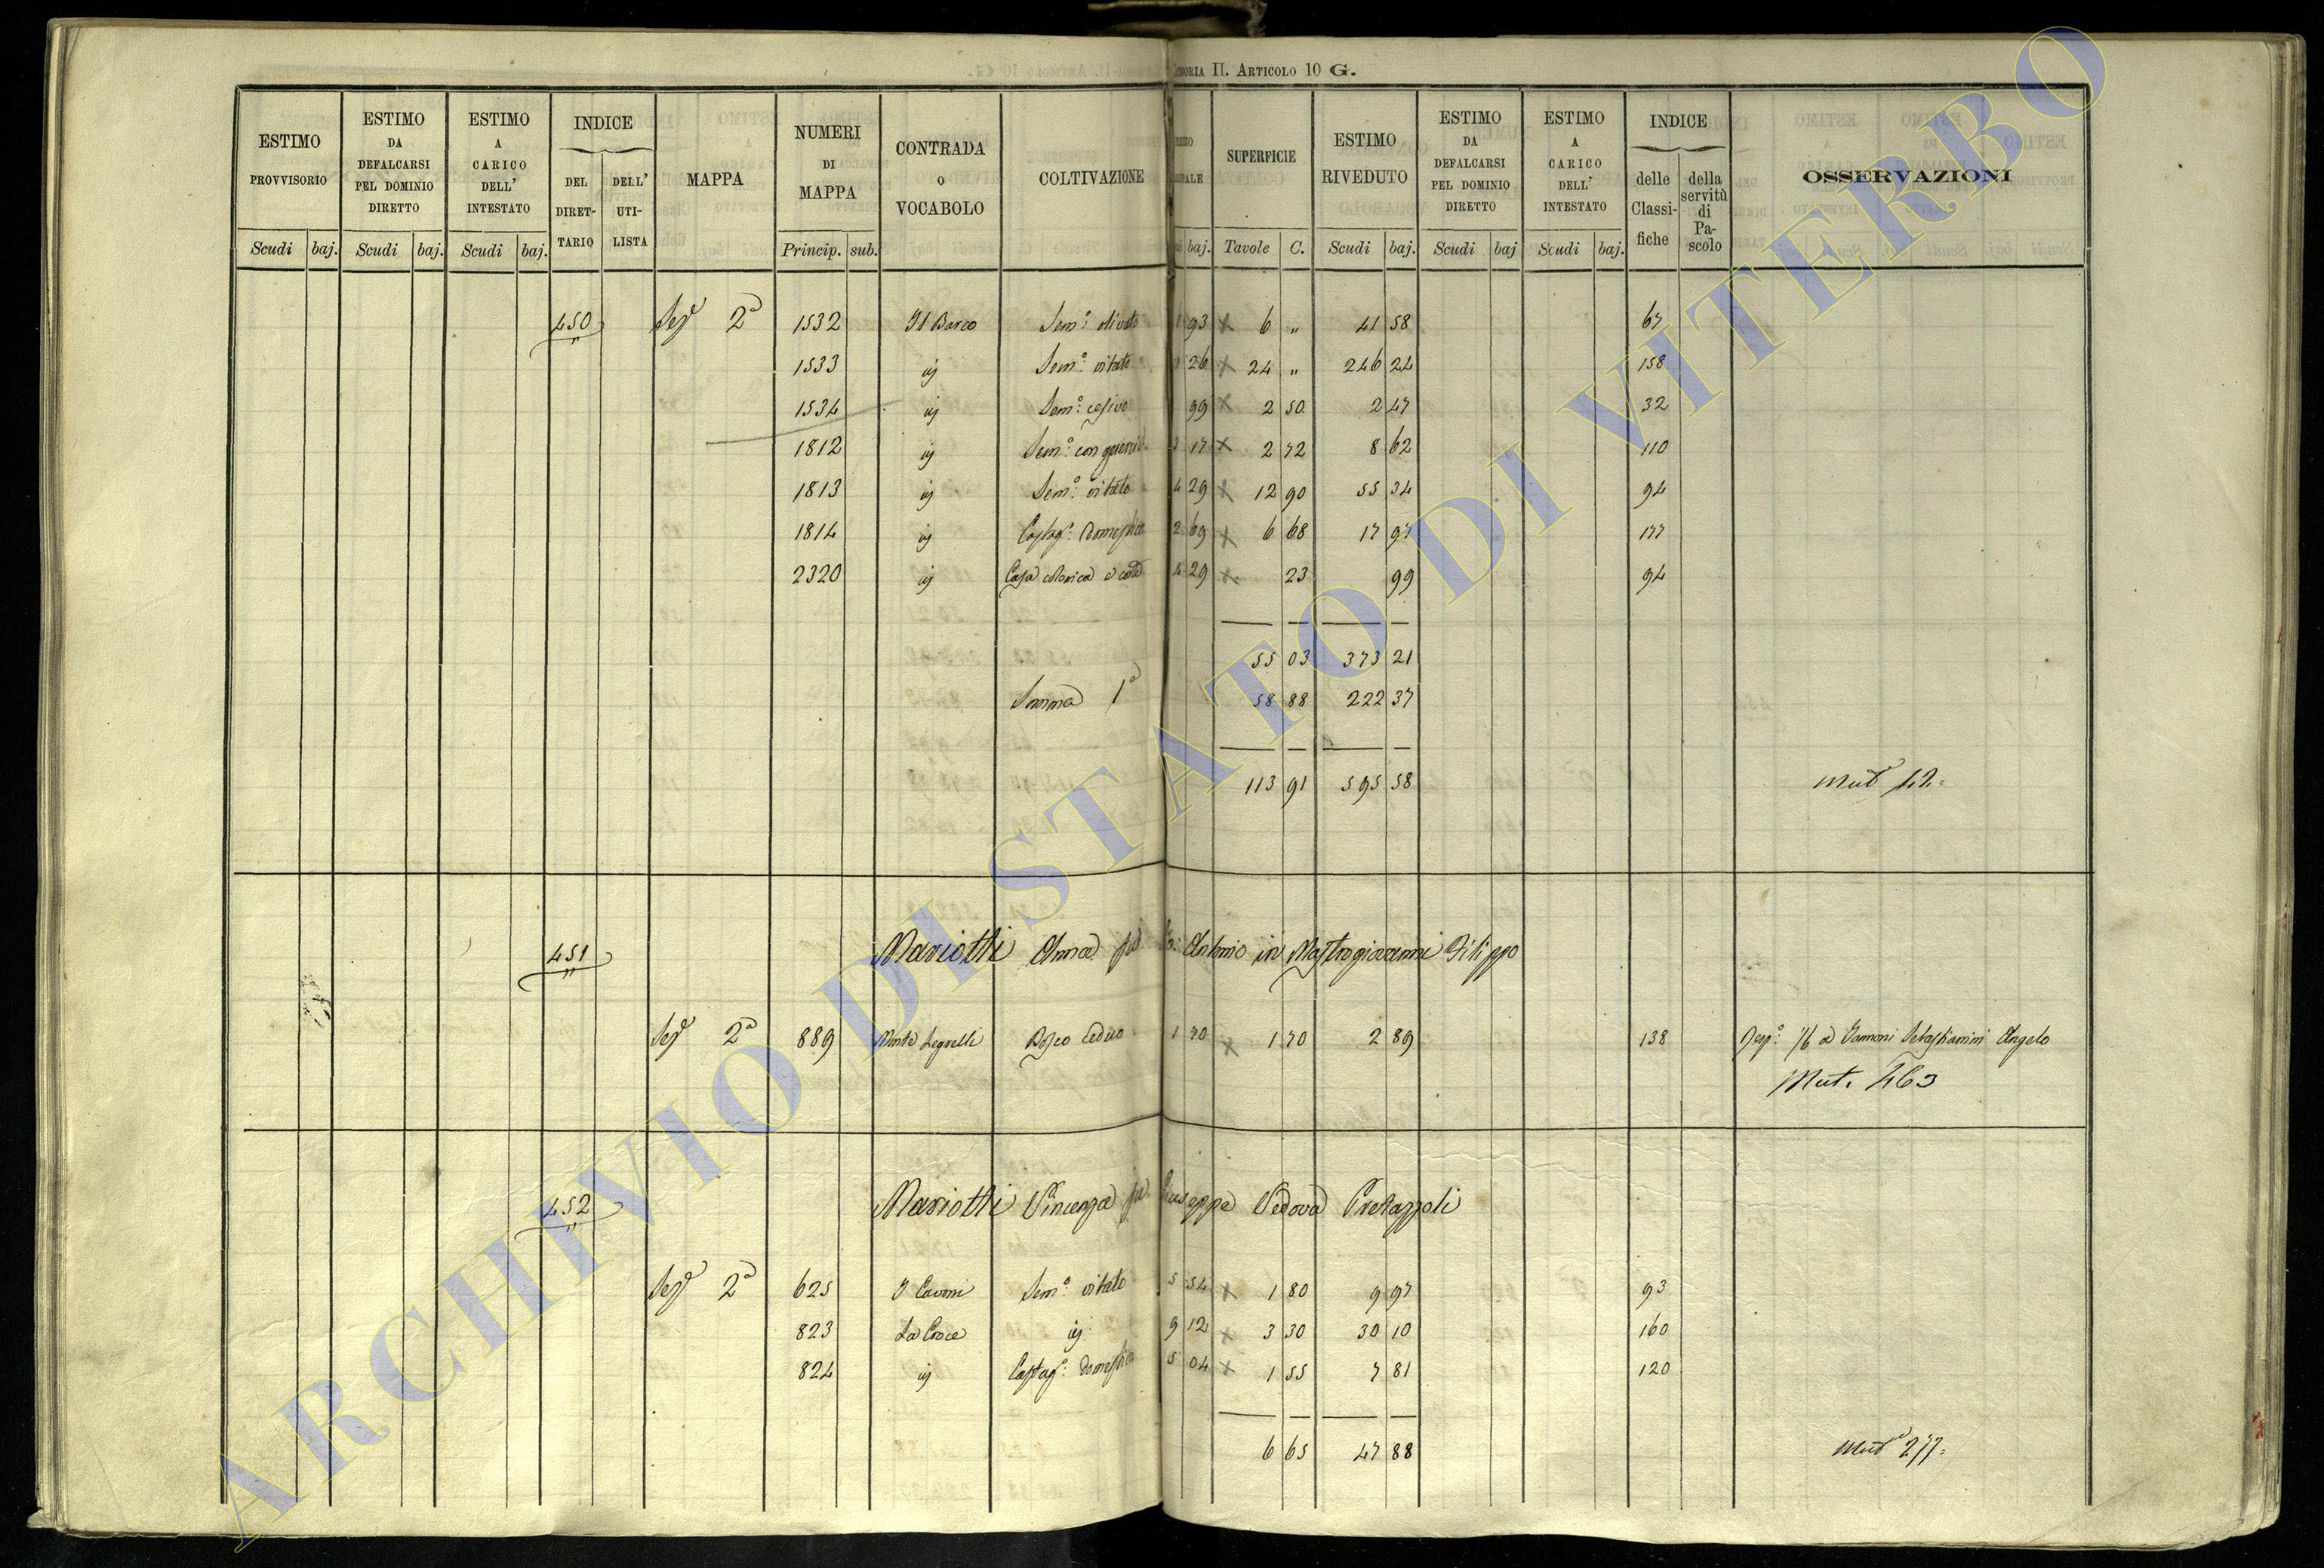 II. ARTICOLO 10 G.
ESTIMO PROVVISORIO
ESTIMO DA DEFALCARSI PEL DOMINIO DIRETTO
ESTIMO A CARICO DELL' INTESTATO
INDICE
DEL DIRETTARIO
DELL' UTILISTA
MAPPA
NUMERI DI MAPPA
CONTRADA O VOCABOLO
COLTIVAZIONE
SUPERFICIE
ESTIMO RIVEDUTO
ESTIMO DA DEFALCARSI PEL DOMINIO DIRETTO
ESTIMO A CARICO DELL' INTESTATO
INDICE
delle Classifiche
della servitù di Pascolo
OSSERVAZIONI
Scudi baj. Scudi baj. Scudi baj. Princip. sub. baj. Tavole C. Scudi baj. Scudi baj Scudi baj.
450 Sez. 2a 1532 Il Barco Sem.o olivato 93 6 " 41 58 67
1533 ij Sem.o vitato 26 24 " 246 24 158
1534 ij Sem.o cesivo 99 2 50 2 47 32
1812 ij Sem.o con 17 2 72 8 62 110
1813 ij Sem.o vitato 4 29 12 90 55 34 94
1814 ij Castag.o Domestico 2 69 6 68 17 97 177
2320 ij Casa colonica e corte 4 29 23 99 94
55 03 373 21
Somma 1a 58 88 222 37
113 91 595 58 Mut. 42
451 Mariotti Anna Antonio in Mastrogiovanni Filippo
Sez. 2a 889 Monte Bosco Ceduo 1 70 1 70 2 89 138 1/6 a Sebastianini Angelo
Mut. 463
452 Mariotti Vincenza Giuseppe Vedova Pretazzoli
Sez. 2a 625 I Cavoni Sem.o vitato 5 54 1 80 9 97 93
823 La Croce ij 9 12 3 30 30 10 160
824 ij Castag.o Domestico 5 04 1 55 7 81 120
6 65 47 88 Mut. 277
ARCHIVIO DI STATO DI VITERBO